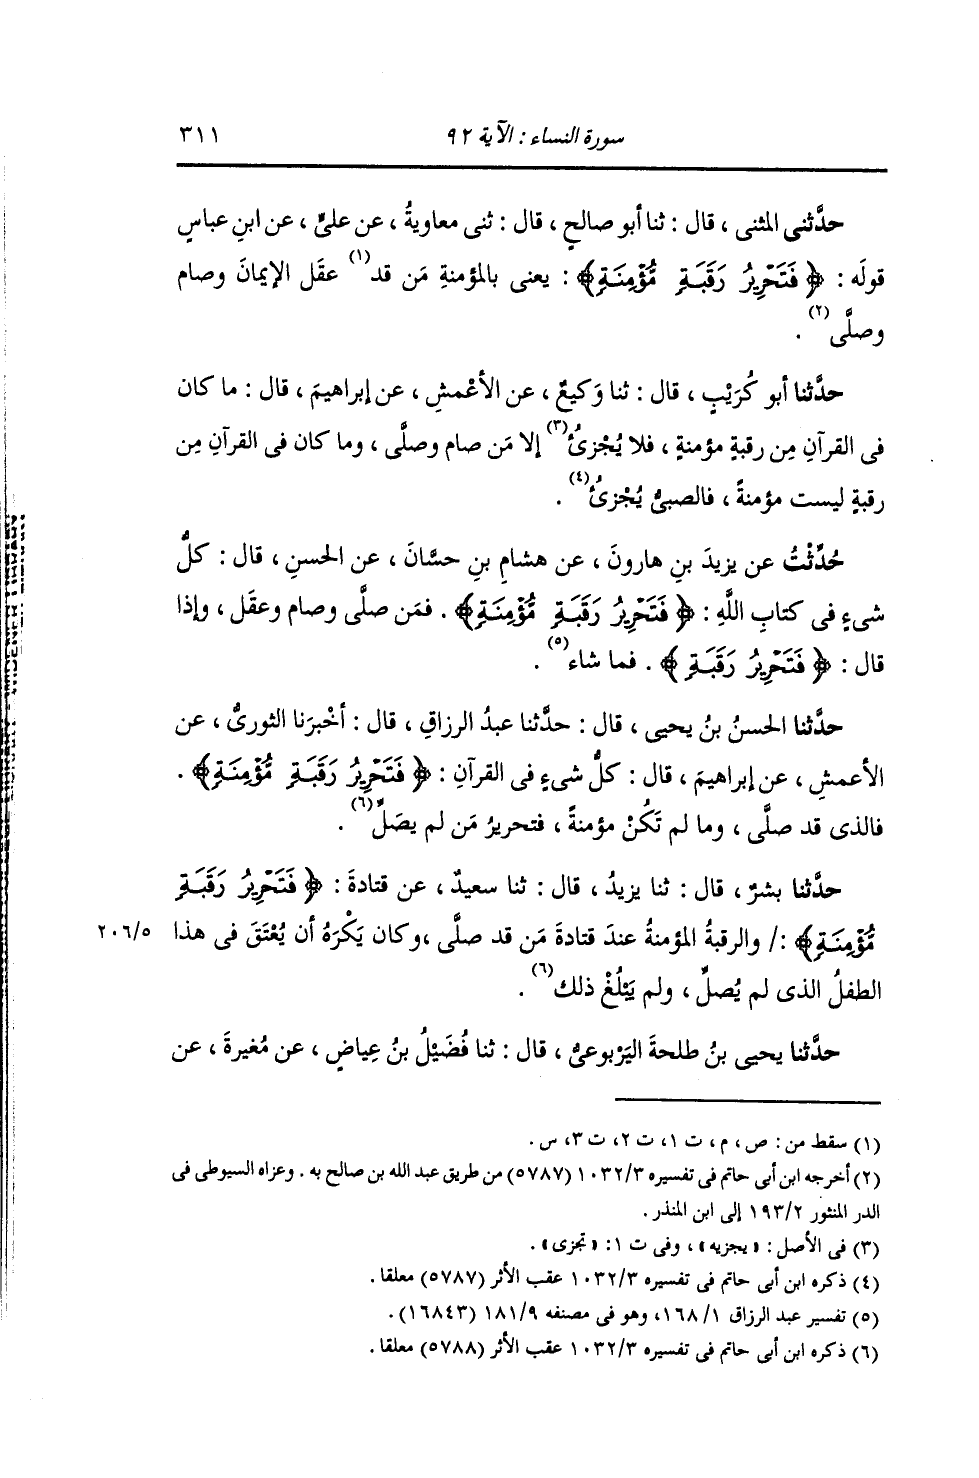 سورة النساء : الآية ٩٢
٣١١
حدَّثنى المثنى ، قال : ثنا أبو صالحٍ ، قال : ثنى معاويةُ ، عن علىٍّ ، عن ابنِ عباسٍ
قولَه : ﴿ فَتَحْرِيرُ رَقَبَةٍ مُّؤْمِنَةٍ ﴾ : يعنى بالمؤمنةِ مَن قد(١) عقَل الإيمانَ وصام
وصلَّى(٢) .
حدَّثنا أبو كُرَيْبٍ ، قال : ثنا وَكيعٌ ، عن الأعْمشِ ، عن إبراهيمَ ، قال : ما كان
فى القرآنِ مِن رقبةٍ مؤمنةٍ ، فلا يُجْزِئُ(٣) إلا مَن صام وصلَّى ، وما كان فى القرآنِ مِن
رقبةٍ ليست مؤمنةً ، فالصبىُّ يُجْزِئُ(٤) .
حُدِّثْتُ عن يزيدَ بنِ هارونَ ، عن هشامِ بنِ حسَّانَ ، عن الحسنِ ، قال : كلُّ
شىءٍ فى كتابِ اللَّهِ : ﴿ فَتَحْرِيرُ رَقَبَةٍ مُّؤْمِنَةٍ ﴾ . فمَن صلَّى وصام وعقَل ، وإذا
قال : ﴿ فَتَحْرِيرُ رَقَبَةٍ ﴾ . فما شاء(٥) .
حدَّثنا الحسنُ بنُ يحيى ، قال : حدَّثنا عبدُ الرزاقِ ، قال : أخْبرَنا الثورىُّ ، عن
الأعمشِ ، عن إبراهيمَ ، قال : كلُّ شىءٍ فى القرآنِ : ﴿ فَتَحْرِيرُ رَقَبَةٍ مُّؤْمِنَةٍ ﴾ .
فالذى قد صلَّى ، وما لم تَكُنْ مؤمنةً ، فتحريرُ مَن لم يصَلِّ(٦) .
حدَّثنا بشرٌ ، قال : ثنا يزيدُ ، قال : ثنا سعيدٌ ، عن قتادةَ : ﴿ فَتَحْرِيرُ رَقَبَةٍ
مُّؤْمِنَةٍ ﴾ :/ والرقبةُ المؤمنةُ عندَ قتادةَ مَن قد صلَّى ،وكان يَكْرَهُ أن يُعْتَقَ فى هذا ٢٠٦/٥
الطفلُ الذى لم يُصلِّ ، ولم يَبْلُغْ ذلك(٦) .
حدَّثنا يحيى بنُ طلحةَ اليَرْبوعىُّ ، قال : ثنا فُضَيْلُ بنُ عِياضٍ ، عن مُغيرةَ ، عن
(١) سقط من : ص ، م ، ت ١، ت ٢، ت ٣، س .
(٢) أخرجه ابن أبى حاتم فى تفسيره ١٠٣٢/٣ (٥٧٨٧) من طريق عبد الله بن صالح به . وعزاه السيوطى فى
الدر المنثور ١٩٣/٢ إلى ابن المنذر .
(٣) فى الأصل : «يجزيه» ، وفى ت ١: «تجزى» .
(٤) ذكره ابن أبى حاتم فى تفسيره ١٠٣٢/٣ عقب الأثر (٥٧٨٧) معلقا .
(٥) تفسير عبد الرزاق ١٦٨/١، وهو فى مصنفه ١٨١/٩ (١٦٨٤٣) .
(٦) ذكره ابن أبى حاتم فى تفسيره ١٠٣٢/٣ عقب الأثر (٥٧٨٨) معلقا .